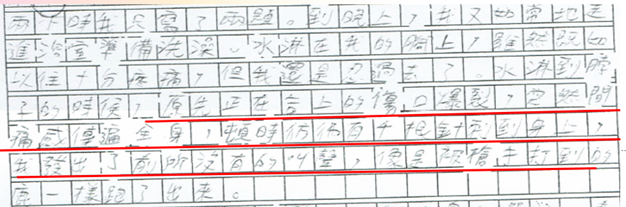 時我只寫了兩題。到晚上,我又如常地走
進浴室準備洗澡。水淋在我的胸上,雖然如
以往十分疼痛,但我還是忍過去了。水淋到
的時候,原先正在上的傷口爆裂,忽然間
痛感傳遍全身,頓時彷彿有千根針刺到身上,
我發出了前所沒有的叫聲,像是被槍打到的
鹿一樣跑了出來。